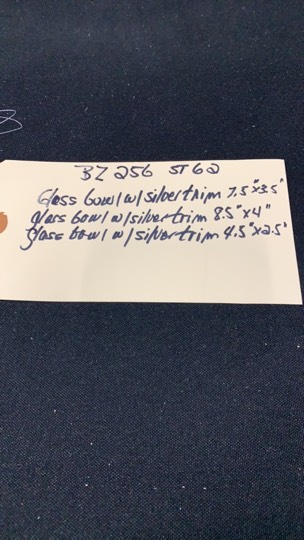 BZ 256 ST 62
Glass bowl w/silvertrim 7.5"x3.5"
glass bowl w/silvertrim 8.5"x4"
glass bowl w/silvertrim 4.5"x2.5"